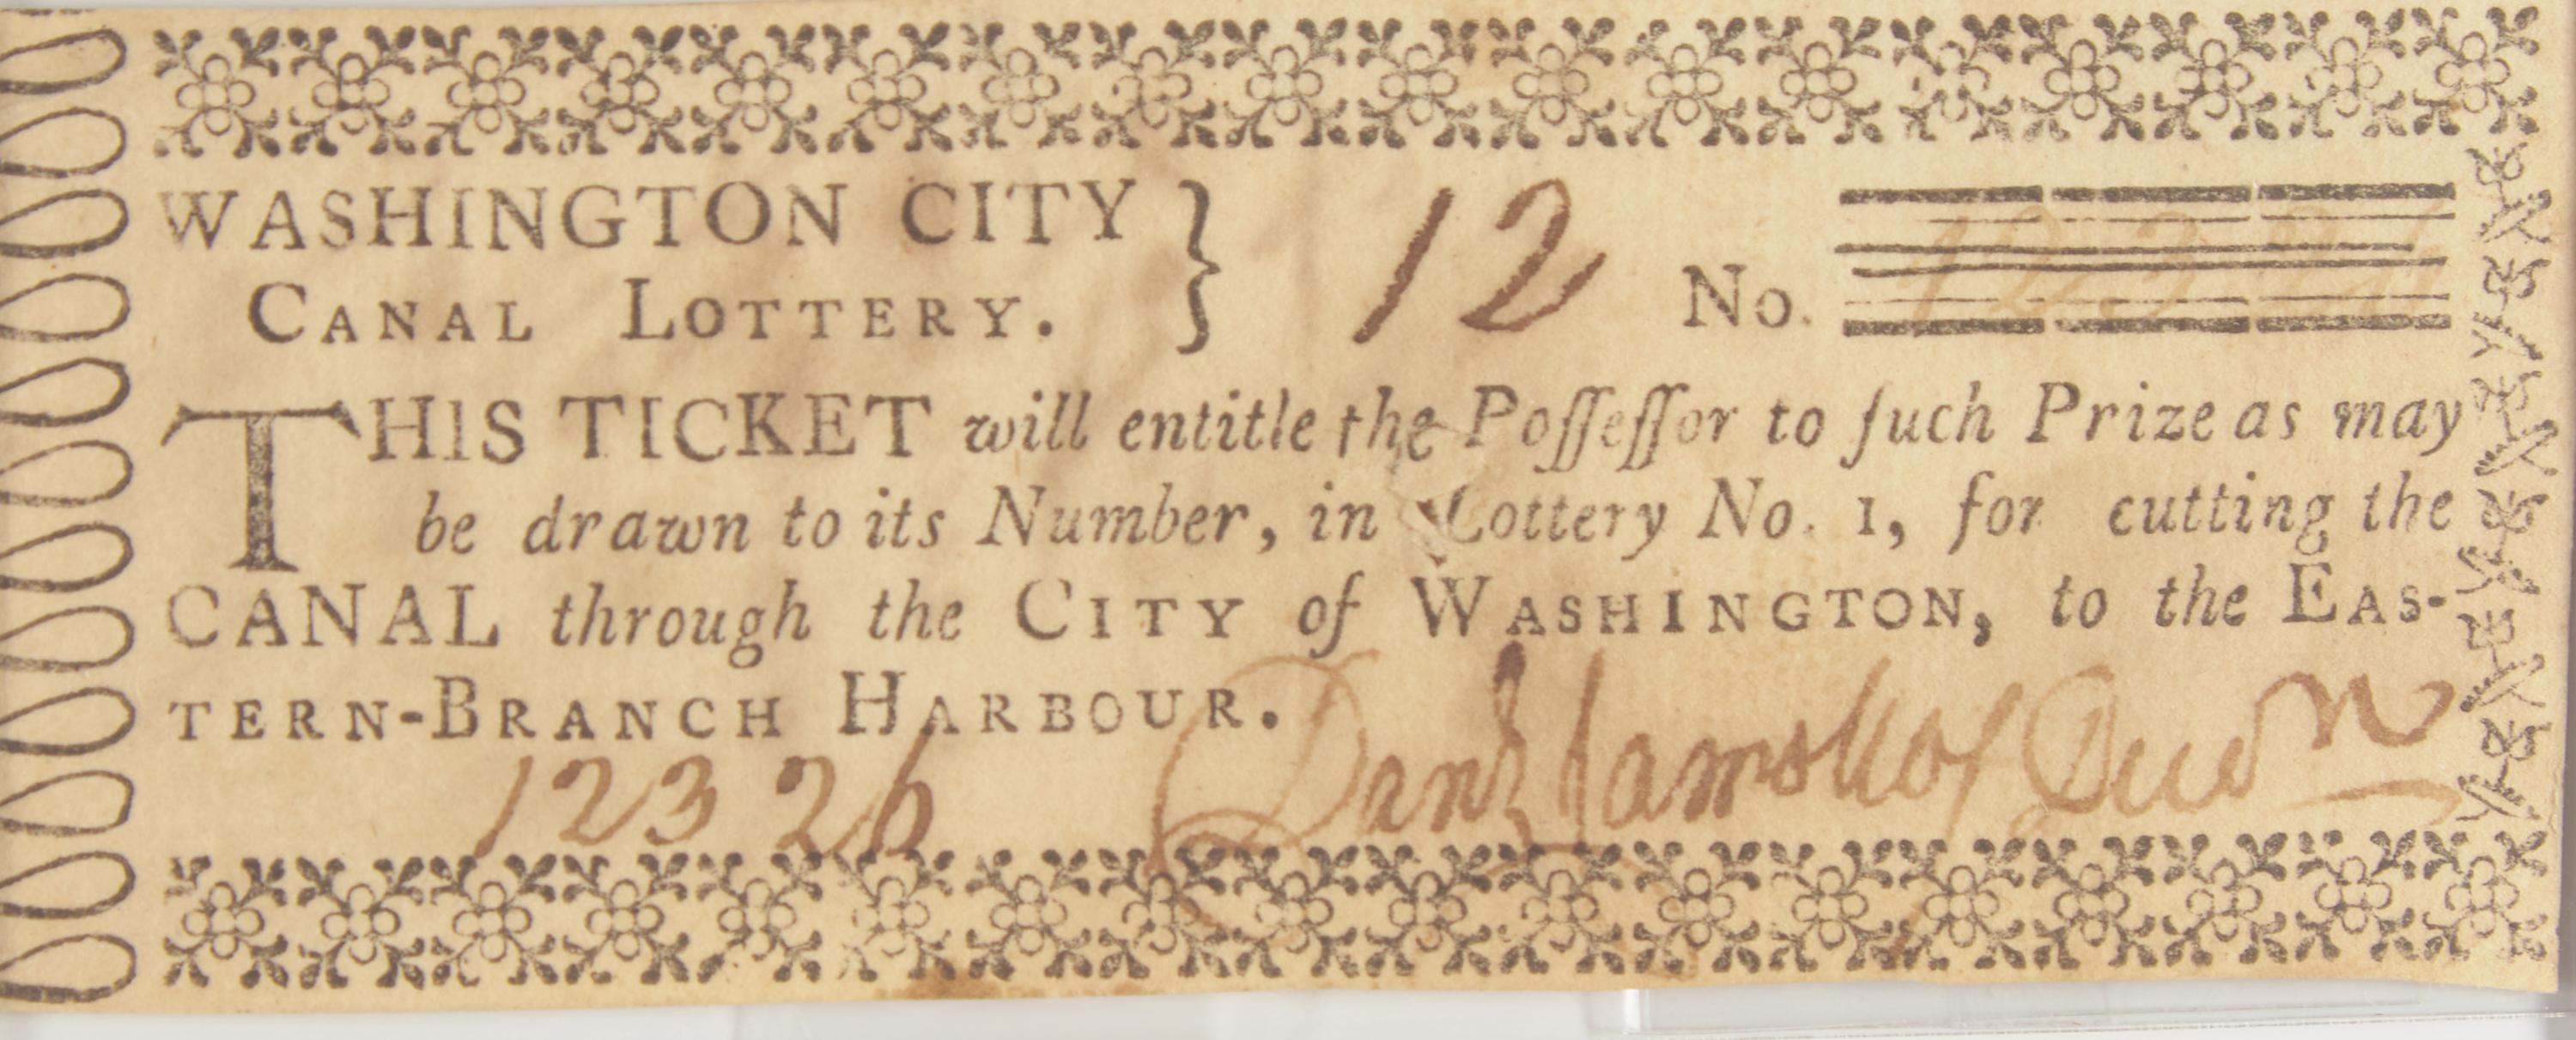 WASHINGTON CITY
CANAL LOTTERY.
12 No.
THIS TICKET will entitle the Poſſeſſor to ſuch Prize as may
be drawn to its Number, in Lottery No. 1, for cutting the
CANAL through the CITY of WASHINGTON, to the EAS-
TERN-BRANCH HARBOUR.
12326